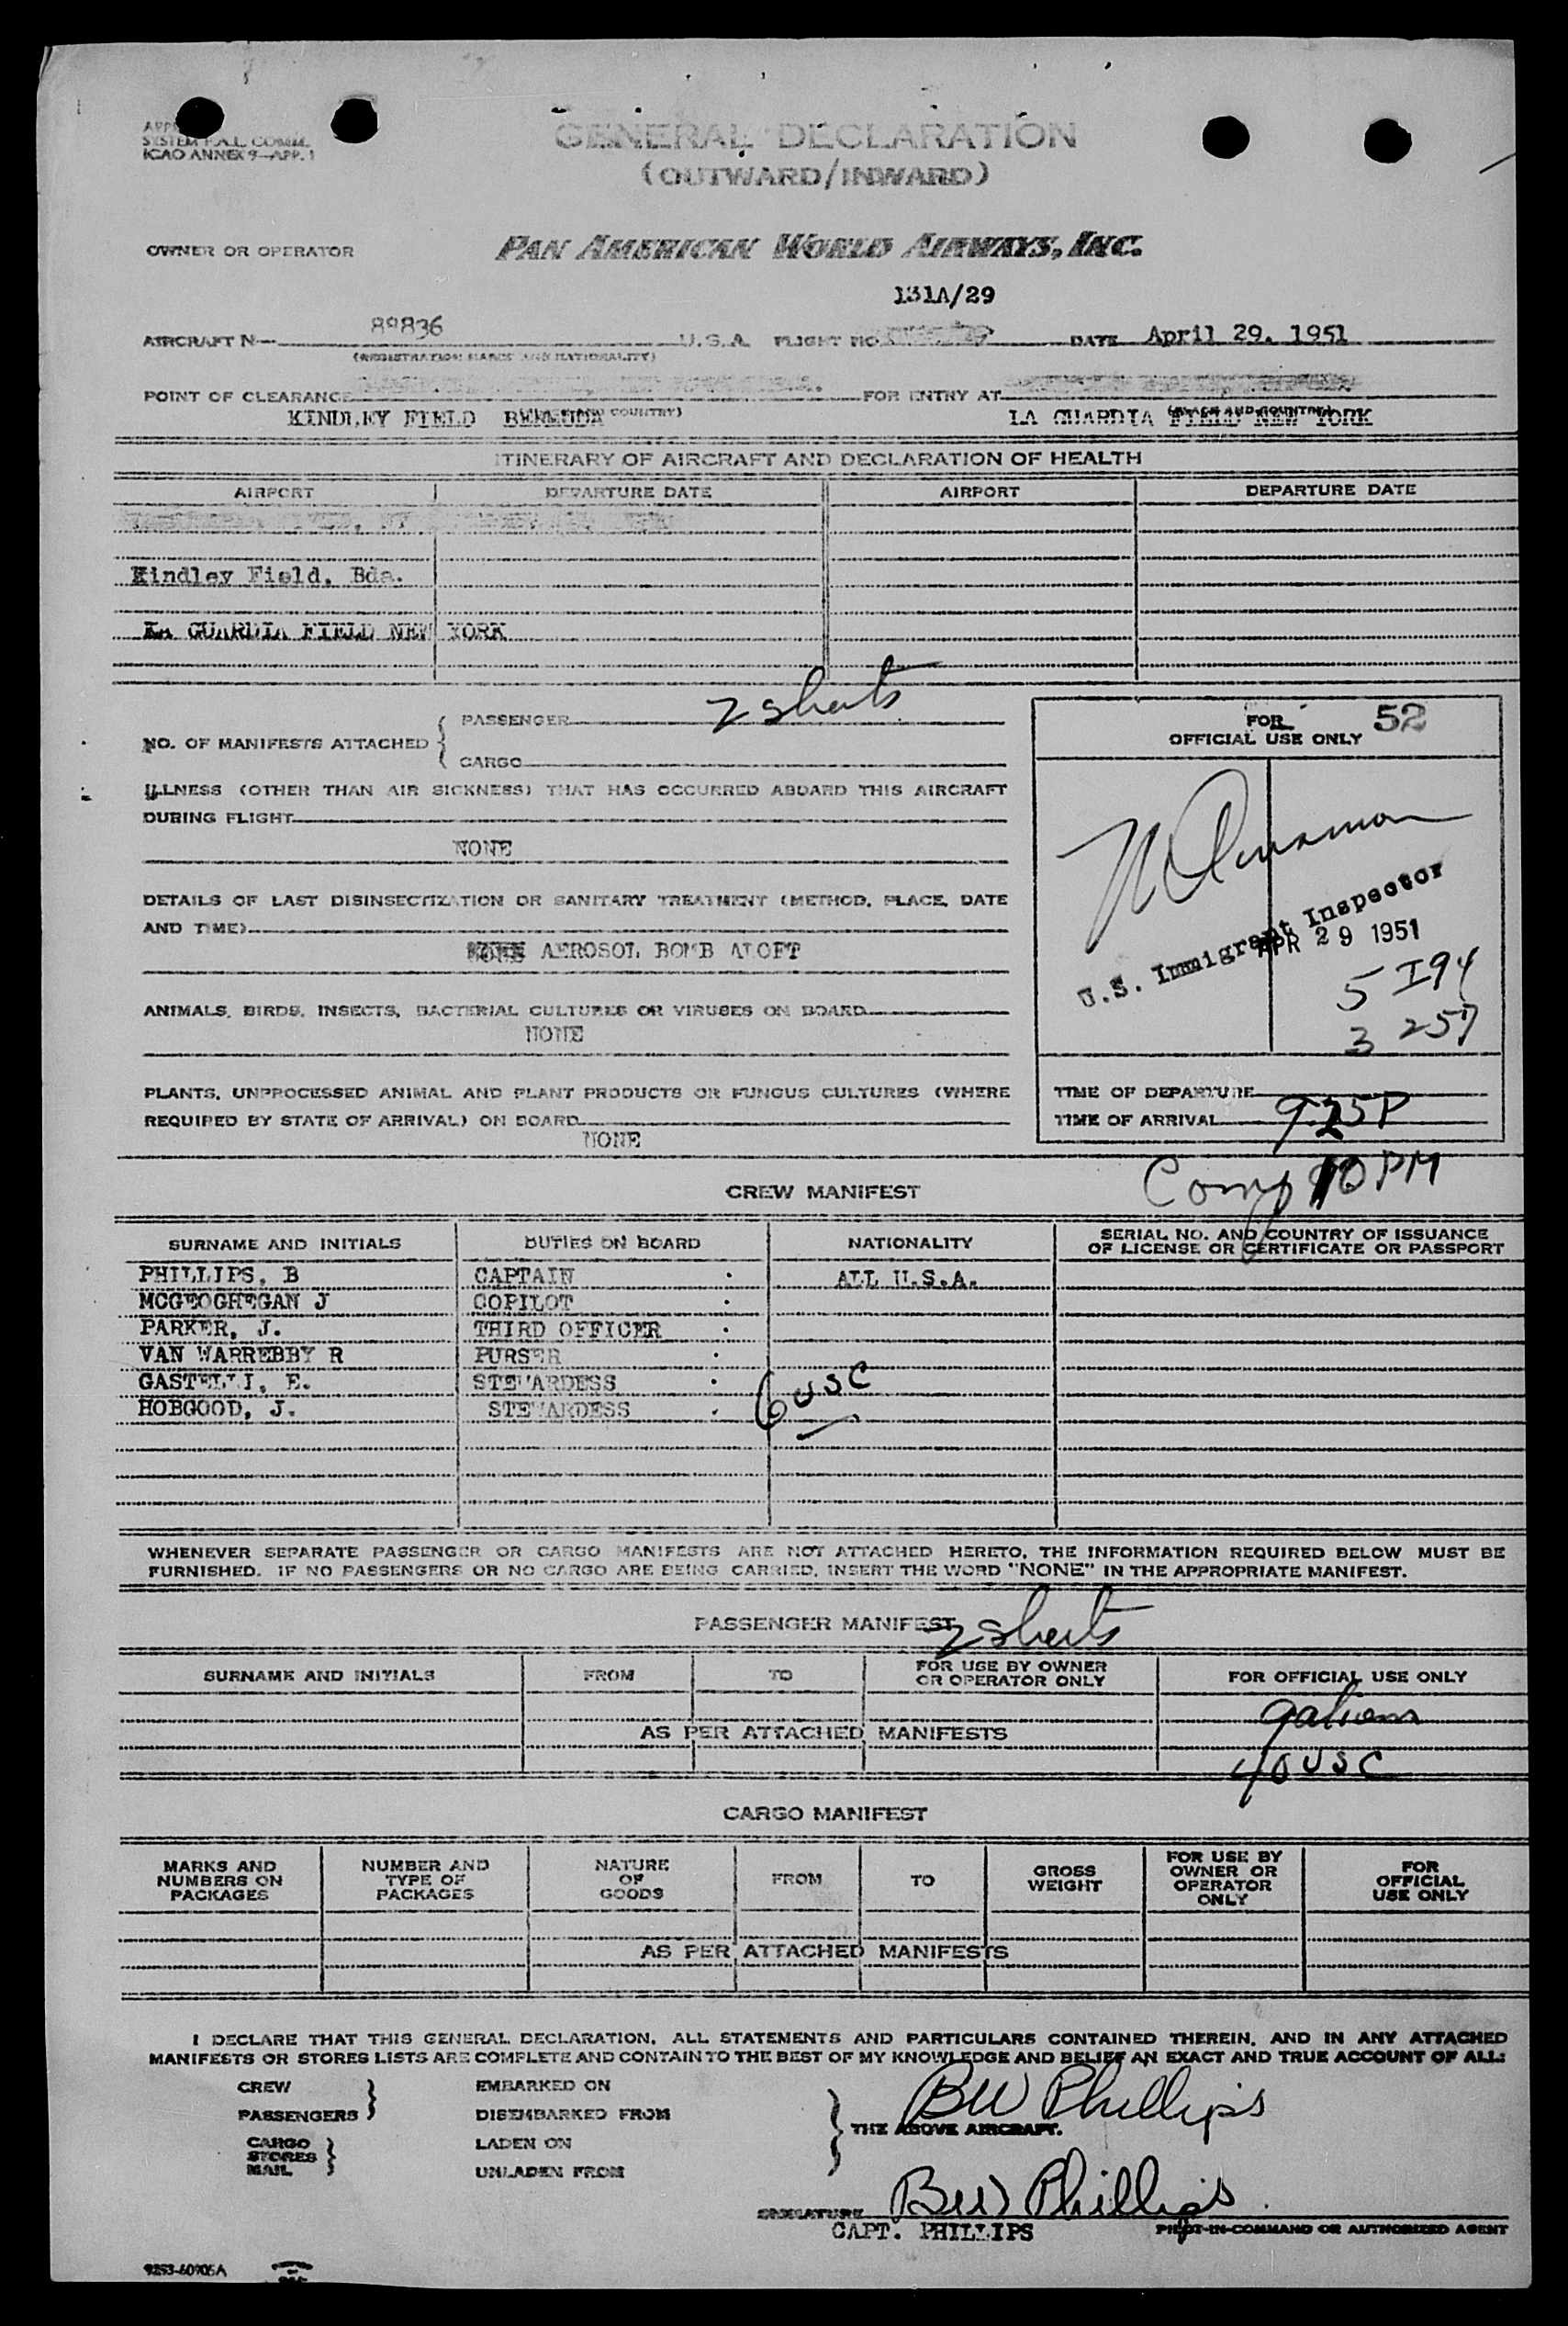 SYSTEM P.A.L. COMM.
ICAO ANNEX 9—APP. 1
GENERAL DECLARATION
(OUTWARD/INWARD)
OWNER OR OPERATOR PAN AMERICAN WORLD AIRWAYS, INC.
131A/29
AIRCRAFT N— 89836 U.S.A. FLIGHT NO. DATE April 29. 1951
(REGISTRATION MARKS AND NATIONALITY)
POINT OF CLEARANCE FOR ENTRY AT
KINDLEY FIELD BERMUDA COUNTRY) LA GUARDIA FIELD NEW YORK (PLACE AND COUNTRY)
ITINERARY OF AIRCRAFT AND DECLARATION OF HEALTH
AIRPORT DEPARTURE DATE AIRPORT DEPARTURE DATE
Kindley Field, Bda.
LA GUARDIA FIELD NEW YORK
NO. OF MANIFESTS ATTACHED { PASSENGER 2 sheets
CARGO
ILLNESS (OTHER THAN AIR SICKNESS) THAT HAS OCCURRED ABOARD THIS AIRCRAFT
DURING FLIGHT
NONE
DETAILS OF LAST DISINSECTIZATION OR SANITARY TREATMENT (METHOD, PLACE, DATE
AND TIME)
AEROSOL BOMB ALOFT
ANIMALS, BIRDS, INSECTS, BACTERIAL CULTURES OR VIRUSES ON BOARD
NONE
PLANTS, UNPROCESSED ANIMAL AND PLANT PRODUCTS OR FUNGUS CULTURES (WHERE
REQUIRED BY STATE OF ARRIVAL) ON BOARD
NONE
FOR 52
OFFICIAL USE ONLY
U.S. Immigrant Inspector
APR 29 1951
5 I94
3 257
TIME OF DEPARTURE
TIME OF ARRIVAL 9.25P
Comp 10 PM
CREW MANIFEST
SURNAME AND INITIALS DUTIES ON BOARD NATIONALITY SERIAL NO. AND COUNTRY OF ISSUANCE
OF LICENSE OR CERTIFICATE OR PASSPORT
PHILLIPS, B CAPTAIN : ALL U.S.A.
MCGEOGHEGAN J COPILOT :
PARKER, J. THIRD OFFICER :
VAN WARREBBY R PURSER :
GASTELLI, E. STEWARDESS : 6 USC
HOBGOOD, J. STEWARDESS :
WHENEVER SEPARATE PASSENGER OR CARGO MANIFESTS ARE NOT ATTACHED HERETO, THE INFORMATION REQUIRED BELOW MUST BE
FURNISHED. IF NO PASSENGERS OR NO CARGO ARE BEING CARRIED, INSERT THE WORD "NONE" IN THE APPROPRIATE MANIFEST.
PASSENGER MANIFEST 2 sheets
SURNAME AND INITIALS FROM TO FOR USE BY OWNER
OR OPERATOR ONLY FOR OFFICIAL USE ONLY
9 aliens
AS PER ATTACHED MANIFESTS
40 USC
CARGO MANIFEST
MARKS AND
NUMBERS ON
PACKAGES NUMBER AND
TYPE OF
PACKAGES NATURE
OF
GOODS FROM TO GROSS
WEIGHT FOR USE BY
OWNER OR
OPERATOR
ONLY FOR
OFFICIAL
USE ONLY
AS PER ATTACHED MANIFESTS
I DECLARE THAT THIS GENERAL DECLARATION, ALL STATEMENTS AND PARTICULARS CONTAINED THEREIN, AND IN ANY ATTACHED
MANIFESTS OR STORES LISTS ARE COMPLETE AND CONTAIN TO THE BEST OF MY KNOWLEDGE AND BELIEF AN EXACT AND TRUE ACCOUNT OF ALL:
CREW EMBARKED ON
PASSENGERS } DISEMBARKED FROM BW Phillips
THE ABOVE AIRCRAFT.
CARGO LADEN ON
STORES
MAIL } UNLADEN FROM
SIGNATURE BW Phillips
CAPT. PHILLIPS PILOT-IN-COMMAND OR AUTHORIZED AGENT
9253-60705A